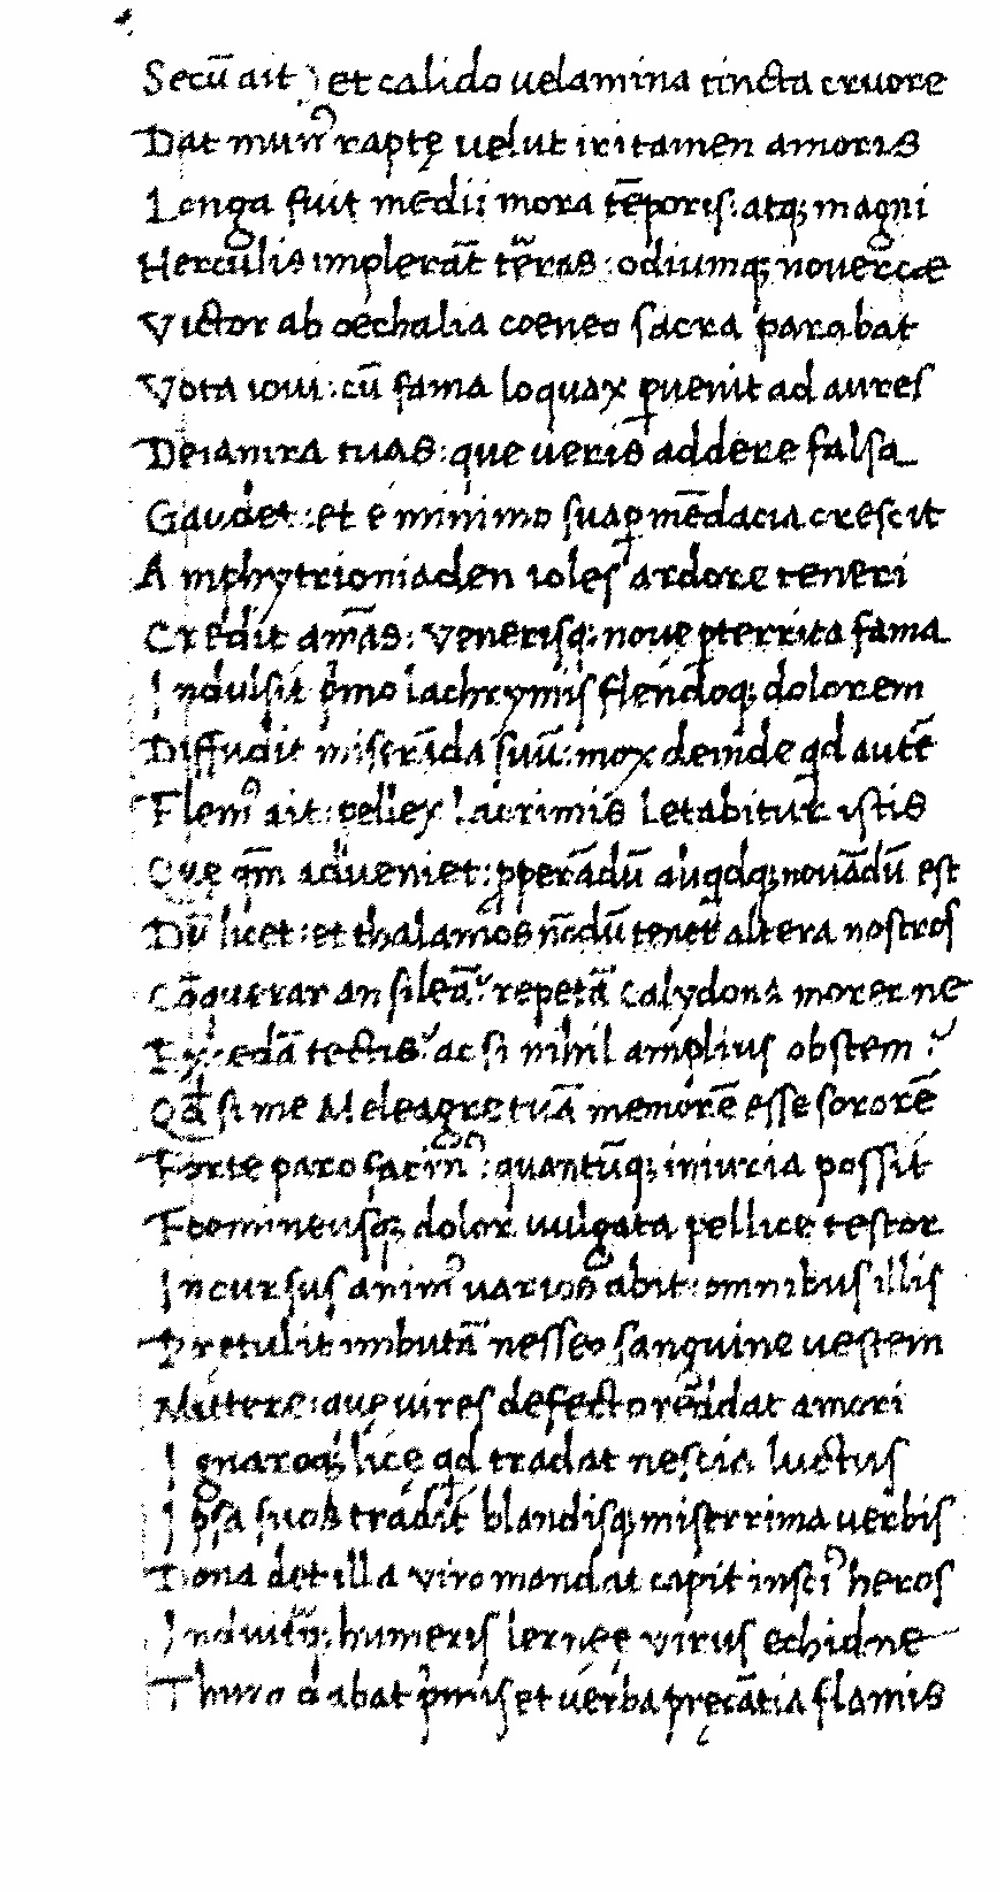 Secū ait ) et calido uelamina tincta cruore
Dat mun᾿ raptę uelut iritamen amoris
Longa fuit medii mora tēporis: atq; magni
Herculis implerāt t̃eras: odiumq; nouercæ
Victor ab oechalia coeneo sacra parabat
Vota ioui: cū fama loquax ꝑuenit ad aures
Deianira tuas: que ueris addere falsa
Gaudet: et e minimo sua ꝑ mēdacia crescit
Amphytrioniaden ioles ardore teneri
Credit am̄as: Venerisq; noue ꝑterrita fama
Indulsit p̍mo lachrymis flendoq; dolorem
Diffudit miserāda suū: mox deinde qd autē
Flem᾿ ait: pellex lacrimis letabitur istis
Que qm̄ adueniet: ꝓperādū aliqdq; nouādū est
Dū licet: et thalamos nōdū tenet altera nostros
Cōquerar an sileā? repetā Calydona morer ne
Excedā tectis? ac si nihil amplius obstem?
Qd si me Meleagre tuā memorē esse sororē
Forte paro facin᾿: quantūq; iniuria possit
Foemineusq; dolor uulgata pellice testor
Incursus anim᾿ uarios abit: omnibus illis
Pretulit imbutā nesseo sanguine uestem
Mittere: que uires defecto reddat amori
Ignaroq; lice qd tradat nescia luctus
Ipsa suos tradit blandisq; miserrima uerbis
Dona det illa viro mandat capit insci᾿ heros
Induitq; humeris lernęę virus echidne
Thura dabat p̍mis et uerba pręcātia flamis